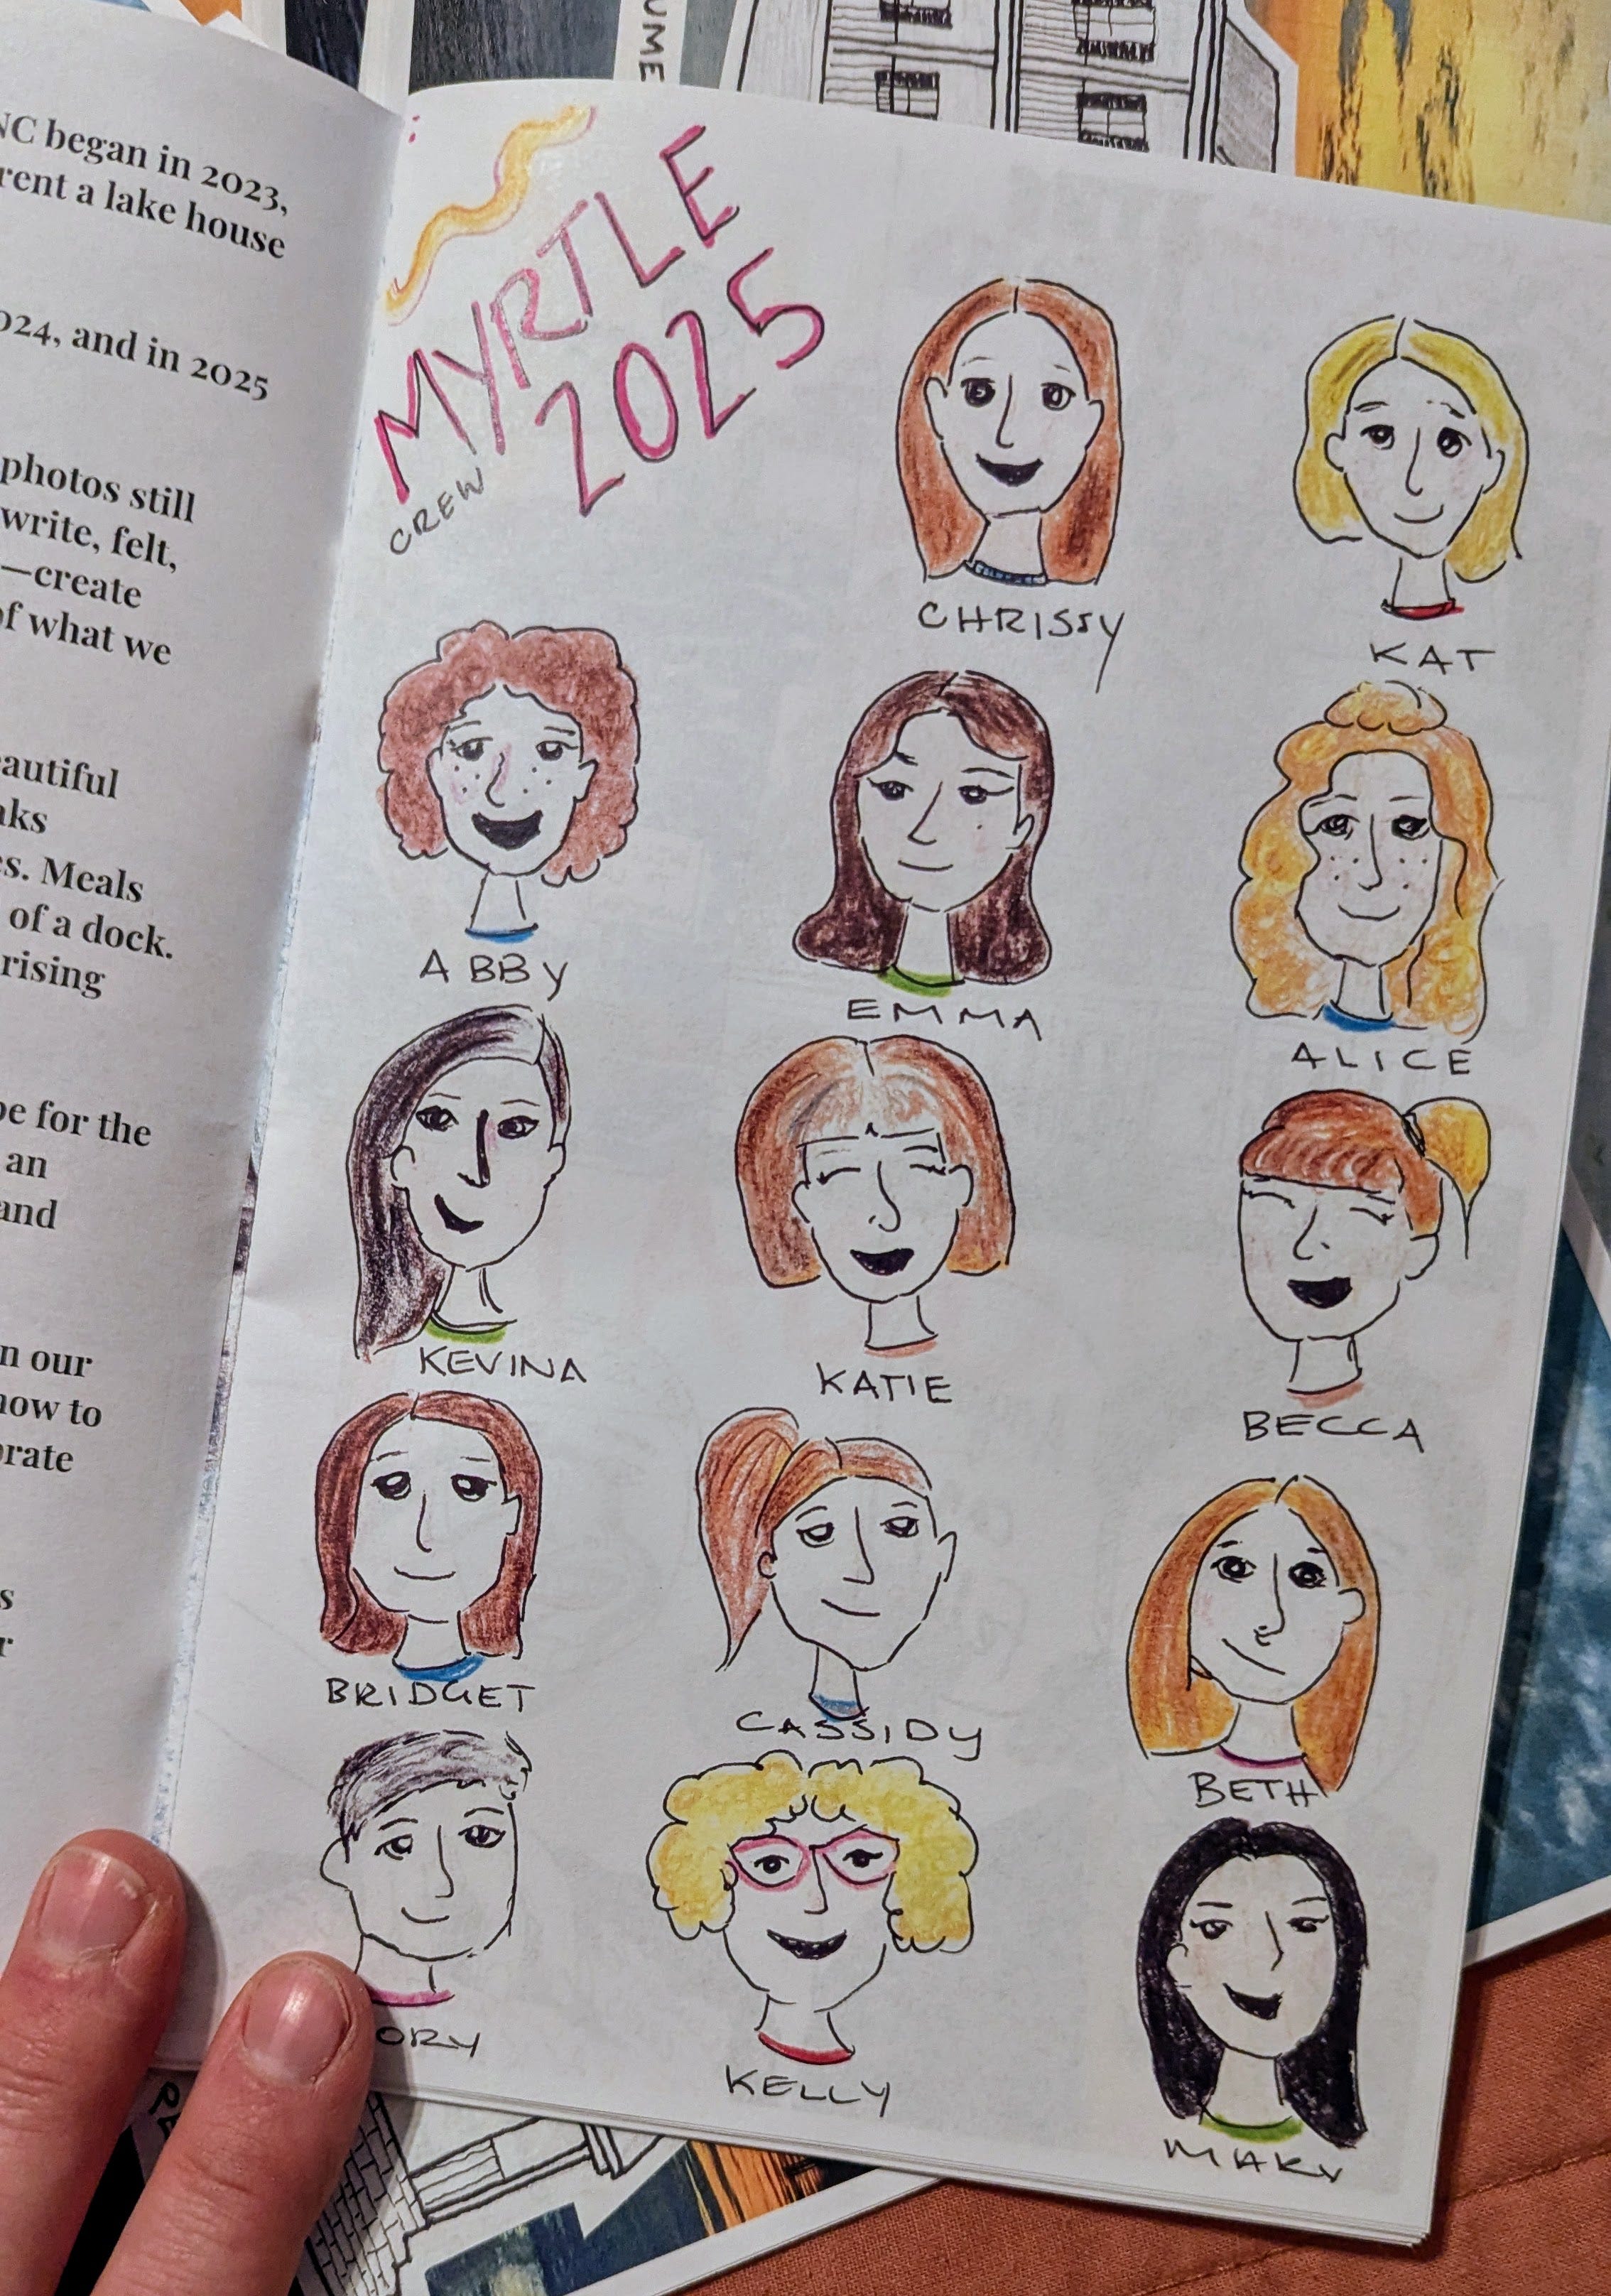 UME
NC began in 2023,
rent a lake house
024, and in 2025
photos still
write, felt,
—create
of what we
eautiful
aks
es. Meals
of a dock.
rising
pe for the
an
and
n our
how to
orate
s
r
MYRTLE
2025
CREW
CHRISSY
KAT
ABBY
EMMA
ALICE
KEVINA
KATIE
BECCA
BRIDGET
CASSIDY
BETH
ORY
KELLY